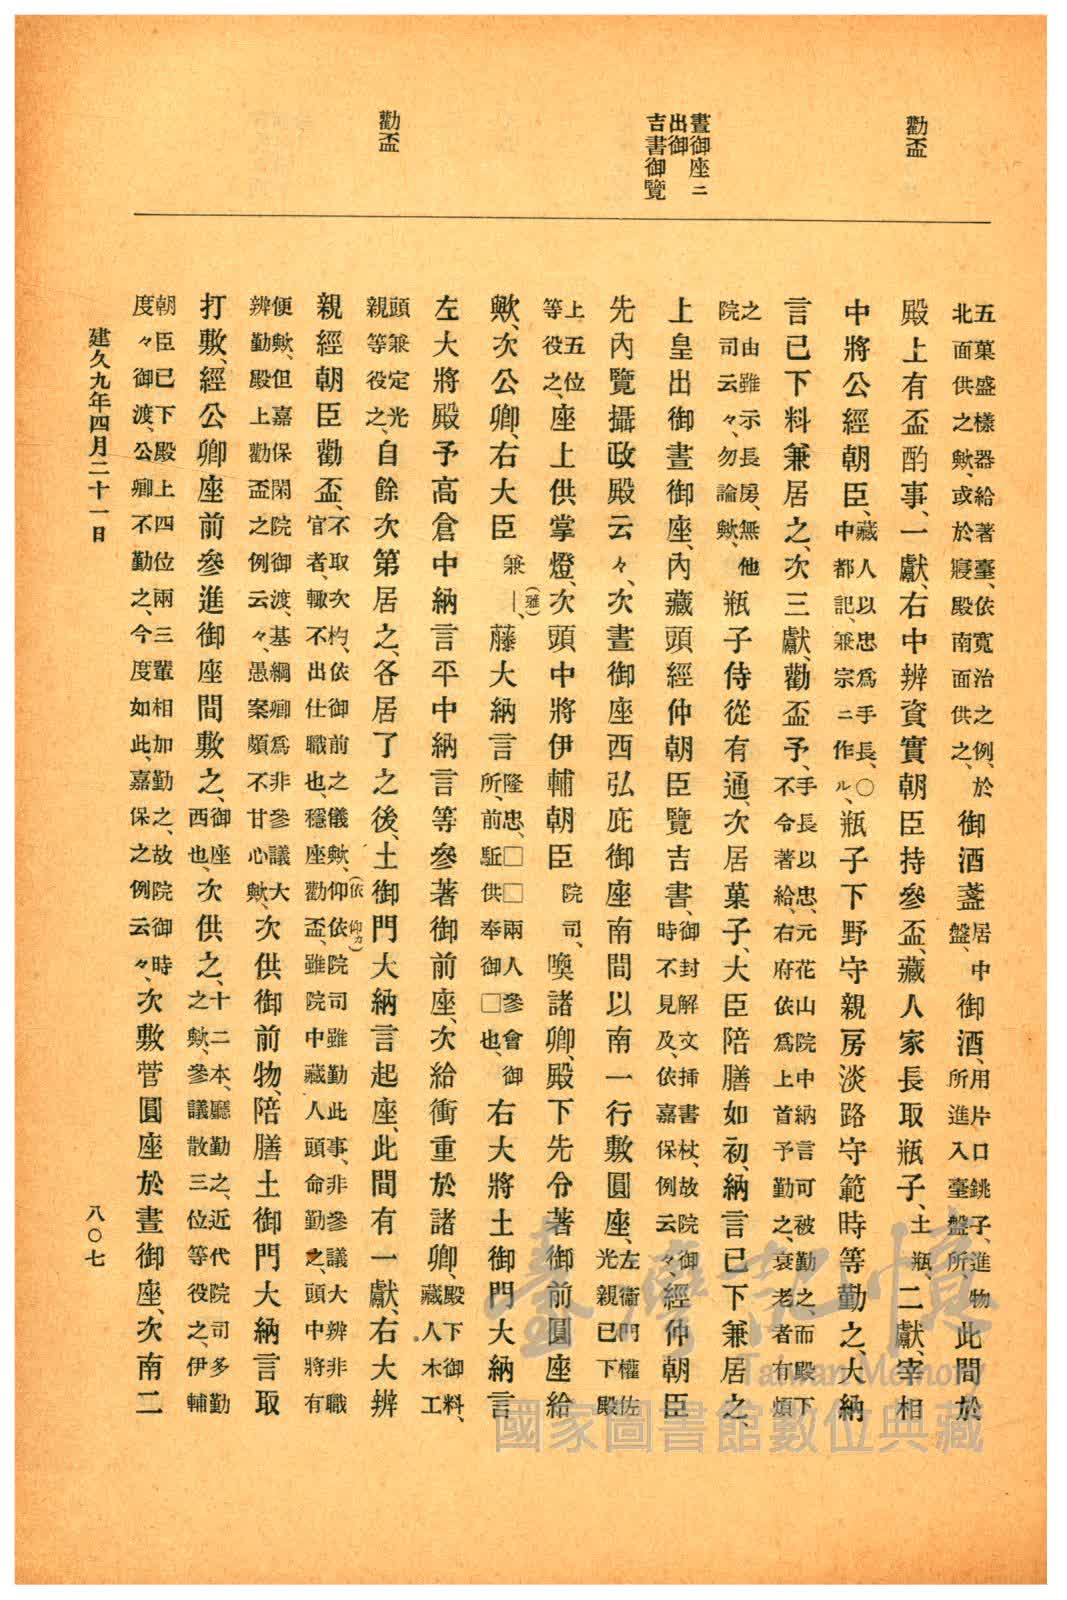 勸盃
晝御座ニ
出御
吉書御覽
勸盃
五菓盛樣器給著臺、依寬治之例、於
北面供之歟、或於寢殿南面供之、
御酒盞
居中
盤、
御酒、
用片口銚子、進物
所進入臺盤所、
此間於
殿上有盃酌事、一獻、右中辨資實朝臣持參盃、藏人家長取瓶子、
土
瓶、
二獻、宰相
中將公經朝臣、
藏人以忠爲手長、〇
中都記、兼宗ニ作ル、
瓶子下野守親房淡路守範時等勤之、大納
言已下料兼居之、次三獻、勸盃予、
手長以忠、元花山院中納言可被勤之、而殿下
不令著給、右府依爲上首予勤之、衰老者有煩
之由雖示長房、無他
院司云々、勿論歟、
瓶子侍從有通、次居菓子、大臣陪膳如初、納言已下兼居之、
上皇出御晝御座、內藏頭經仲朝臣覽吉書、
御封解文挿書杖、故院御
時不見及、依嘉保例云々、
經仲朝臣
先內覽攝政殿云々、次晝御座西弘庇御座南間以南一行敷圓座、
左衞門權佐
光親已下殿
上五位、
等役之、
座上供掌燈、次頭中將伊輔朝臣
院
司、
喚諸卿、殿下先令著御前圓座給
歟、次公卿、右大臣
兼
(雅)
｜、
藤大納言
隆忠、□□兩人參會御
所、前駈供奉御□也、
右大將土御門大納言
左大將殿予高倉中納言平中納言等參著御前座、次給衝重於諸卿、
殿下御料、
藏人木工
頭兼定光
親等役之、
自餘次第居之、各居了之後、土御門大納言起座、此間有一獻、右大辨
親經朝臣勸盃、
不取次杓、依御前之儀歟、仰依院司雖勤此事、非參議大辨非職
(依仰カ)
官者、輙不出仕職也、穩座勸盃、雖院中藏人頭命勤之、頭中將有
便歟、但嘉保閑院御渡、基綱卿爲非參議大
辨勤殿上勸盃之例云々、愚案頗不甘心歟、
次供御前物、陪膳土御門大納言取
打敷、經公卿座前參進御座間敷之、
御座
西也、
次供之、
十二本、廳勤之、近代院司多勤
之歟、參議散三位等役之、伊輔
朝臣已下殿上四位兩三輩相加勤之、故院御時
度々御渡、公卿不勤之、今度如此、嘉保之例云々、
次敷菅圓座於晝御座、次南二
建久九年四月二十一日
八〇七
臺灣記憶
Taiwan Memory
國家圖書館數位典藏